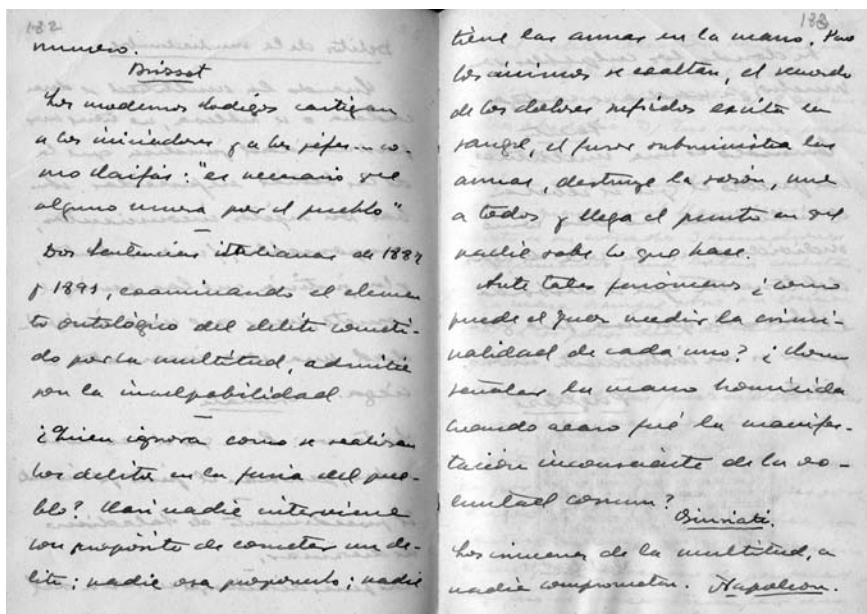 132
número.
Brissot
Los modernos Codigos castigan
a los iniciadores y a los jefes — co-
mo Caifás: "es necesario que
alguno muera por el pueblo"
Dos Sentencias italianas de
y 1891, examinando el elemen
to ontológico del delito cometi-
do por la multitud, admitie
ron la inculpabilidad
¿Quien ignora como se realizan
los delitos en la furia del pue-
blo? Casi nadie interviene
con propósito de cometer un de-
lito; nadie osa proponerlo; nadie
133
tiene las armas en la mano. Pero
los ánimos se exaltan, el recuerdo
de los dolores sufridos excita la
sangre, el furor subministra las
armas, destruye la razón, une
a todos y llega el punto en que
nadie sabe lo que hace.
Ante tales fenómenos ¿como
puede el Juez medir la crimi-
nalidad de cada uno? ¿Como
señalar la mano homicida
cuando acaso fué la manifes-
tación inconsciente de la vo-
luntad comun?
Giuriati.
Los crimenes de la multitud, a
nadie comprometen. Napoleon.